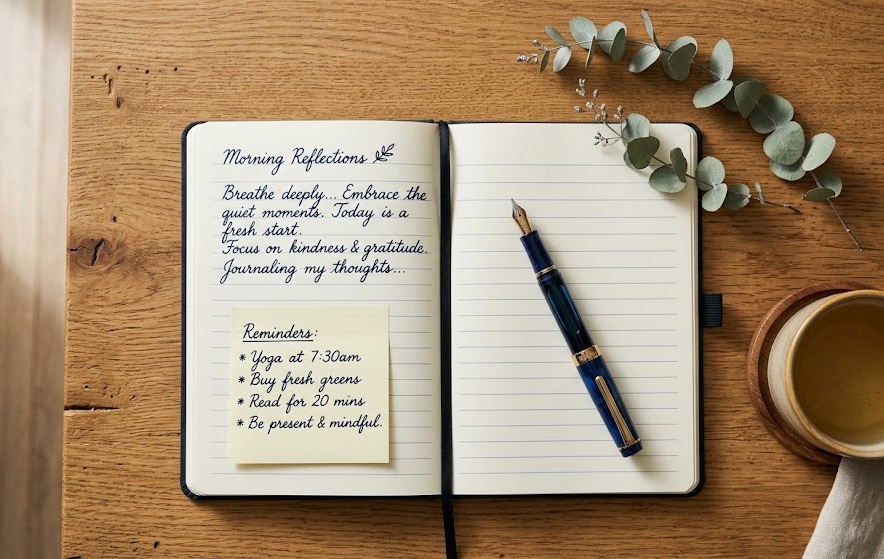 Morning Reflections
Breathe deeply... Embrace the
quiet moments. Today is a
fresh start.
Focus on kindness & gratitude.
Journaling my thoughts...
Reminders:
* Yoga at 7:30am
* Buy fresh greens
* Read for 20 mins
* Be present & mindful.